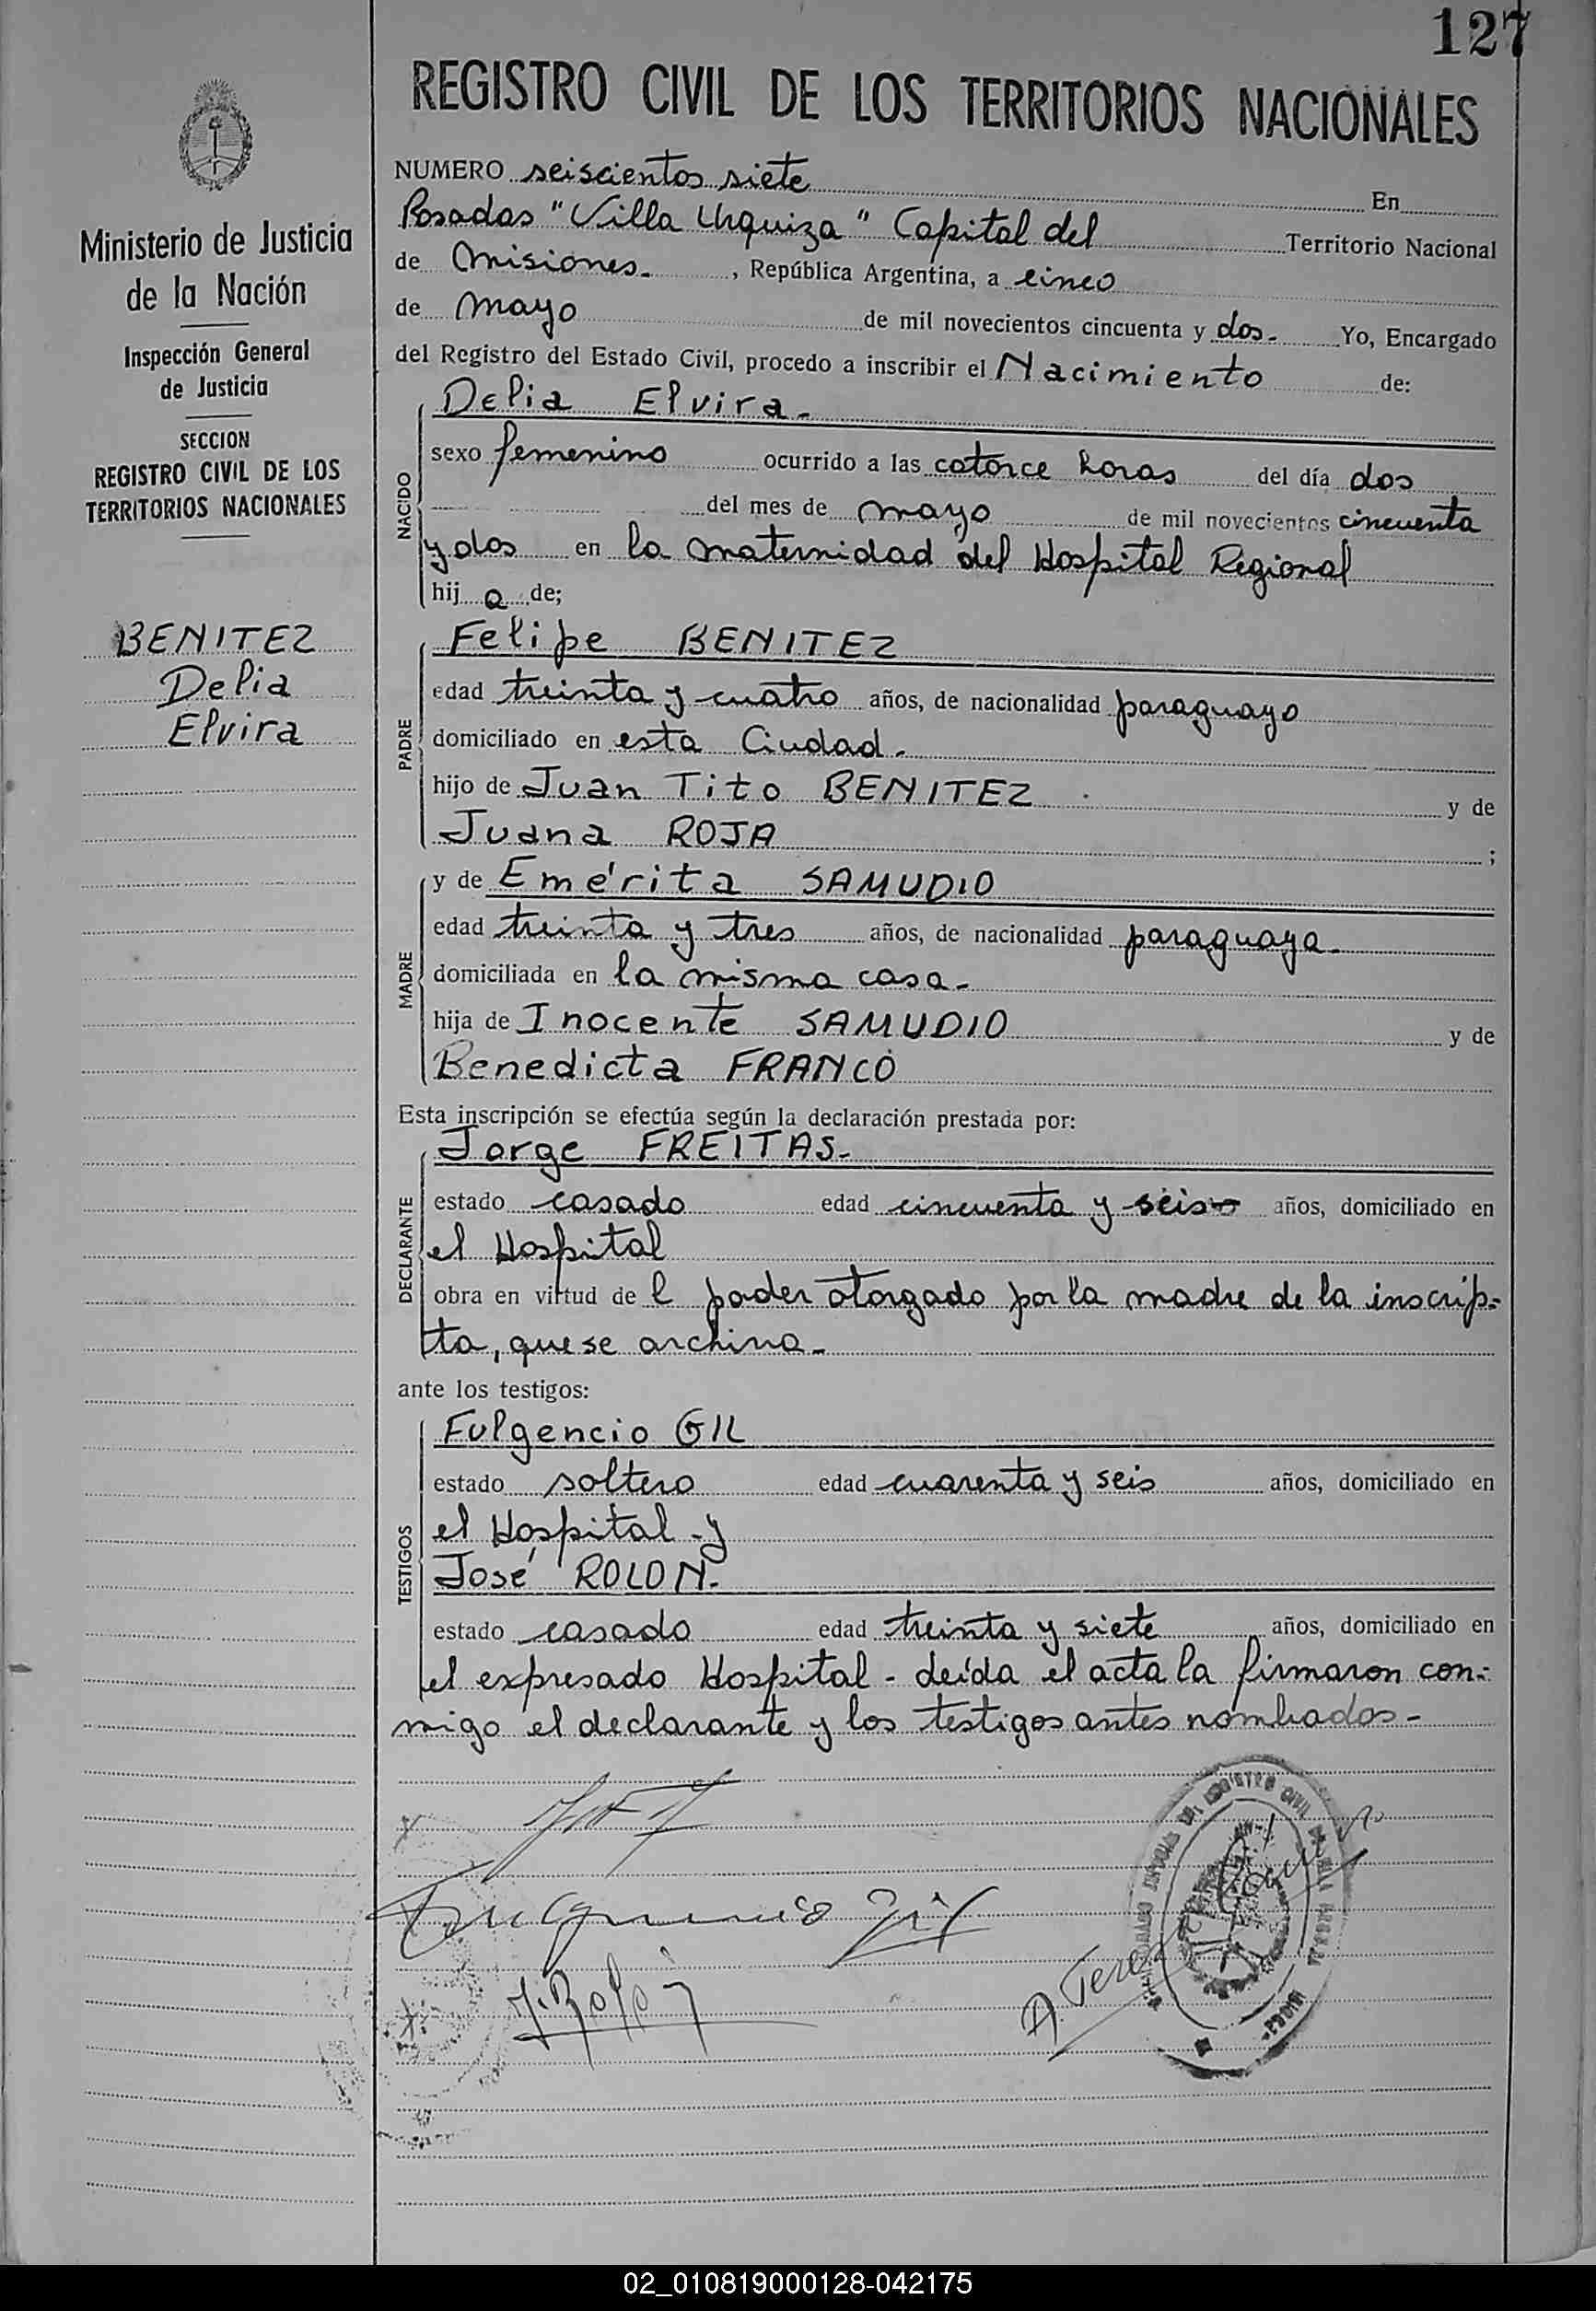 127
REGISTRO CIVIL DE LOS TERRITORIOS NACIONALES
Ministerio de Justicia
de la Nación
Inspección General
de Justicia
SECCION
REGISTRO CIVIL DE LOS
TERRITORIOS NACIONALES
BENITEZ
Delia
Elvira
NUMERO seiscientos siete En
Posadas "Villa Urquiza" Capital del Territorio Nacional
de Misiones. , República Argentina, a cinco
de mayo de mil novecientos cincuenta y dos. Yo, Encargado
del Registro del Estado Civil, procedo a inscribir el Nacimiento de:
NACIDO
Delia Elvira.
sexo femenino ocurrido a las catorce horas del día dos
del mes de mayo de mil novecientos cincuenta
y dos en la maternidad del Hospital Regional
hij a de;
PADRE
Felipe BENITEZ
edad treinta y cuatro años, de nacionalidad paraguayo
domiciliado en esta Ciudad.
hijo de Juan Tito BENITEZ y de
Juana ROJA ;
MADRE
y de Emérita SAMUDIO
edad treinta y tres años, de nacionalidad paraguaya.
domiciliada en la misma casa.
hija de Inocente SAMUDIO y de
Benedicta FRANCO
Esta inscripción se efectúa según la declaración prestada por:
DECLARANTE
Jorge FREITAS.
estado casado edad cincuenta y seis años, domiciliado en
el Hospital
obra en virtud de l poder otorgado por la madre de la inscrip-
ta, que se archiva.
ante los testigos:
TESTIGOS
Fulgencio GIL
estado soltero edad cuarenta y seis años, domiciliado en
el Hospital - y
José ROLON.
estado casado edad treinta y siete años, domiciliado en
el expresado Hospital - Leída el acta la firmaron con-
migo el declarante y los testigos antes nombrados -
Fulgencio Gil
J. Rolón
02_010819000128-042175